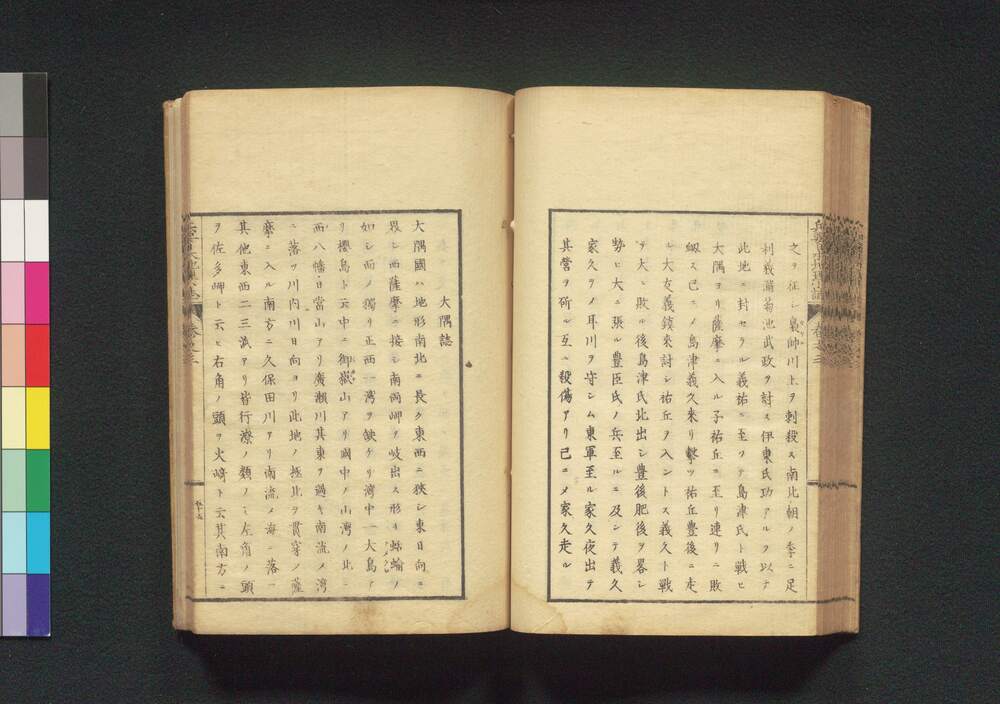 文ヲ征シ梟帥川上ヲ刺殺ス南北朝ノ季ニ足
利義満菊池武政ヲ討ス伊東氏功アルヲ以テ
此地ニ封セラル義祐ニ至リテ島津氏ト戦ヒ
大隅ヨリ薩摩ニ入ル子祐丘ニ至リ連リニ敗
衂ス已ニノ島津義久来リ撃ツ祐丘豊後ニ走
レ大友義鎮来討シ祐丘ヲ入ントス義久ト戦
テ大ニ敗ル後島津氏北出シ豊後肥後ヲ畧シ
勢ヒ大ニ張ル豊臣氏ノ兵至ルニ及ンテ義久
家久ヲノ耳川ヲ守シム東軍至ル家久夜出テ
其営ヲ斫ル互ニ殺傷アリ已ニノ家久走ル
大隅誌
大隅國ハ地形南北ニ長ク東西ニ狭シ東日向ニ
界シ西薩摩ニ接シ南両岬ヲ岐出ス形チ
如シ而ノ獨リ正西一湾ヲ缺ケリ湾中一大島ア
リ櫻島ト云中ニ御嶽山アリ國中ノ山湾ノ北ニ
西八幡日當山アリ廣瀬川其東ヲ過キ南流ノ湾
ニ落ツ川内川日向ヨリ此地ノ極北ヲ貫穿ノ薩
摩ニ入ル南方ニ久保田川アリ南流ノ海ニ落ツ
其他東西二三流アリ皆行潦ノ類ノミ左角ノ頭
ヲ佐多岬ト云ヒ右角ノ頭ヲ火﨑ト云其南方ニ